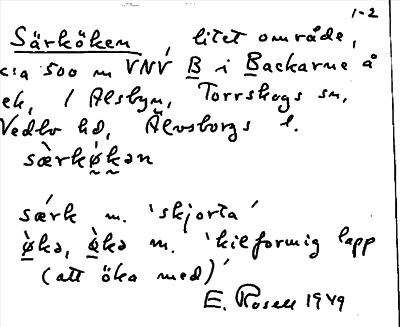 1-2
Särköken, litet område,
c:a 500 m VNV B i Backarne å
ek, / Ålsbyn, Torrskogs sn,
Vedbo hd, Älvsborgs l.
sæ̀rkø̰k̰ən
særk m. 'skjorta'
ø̀kə, ø̀kə m. 'kilformig lapp
(att öka med)'
E. Rosell 1949